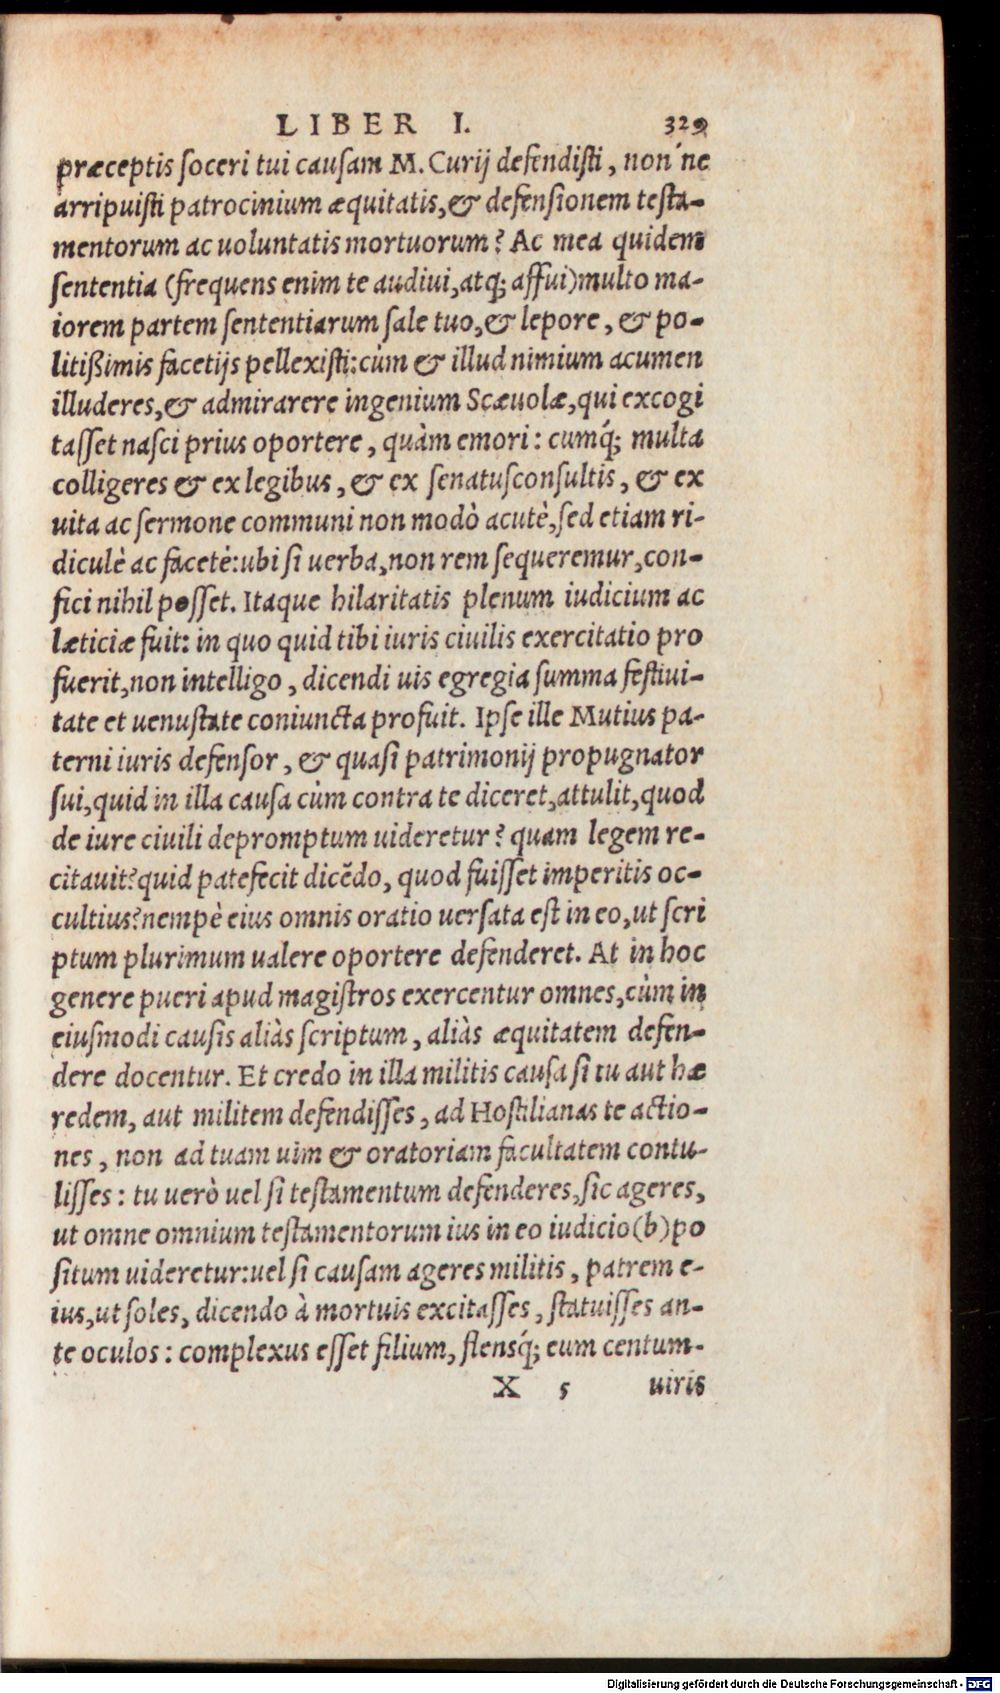 LIBER I. 329
præceptis ſoceri tui cauſam M. Curij defendiſti, non´ne
arripuiſti patrocinium æquitatis, & defenſionem teſta-
mentorum ac uoluntatis mortuorum? Ac mea quidem
ſententia (frequens enim te audiui, atq; affui) multo ma-
iorem partem ſententiarum ſale tuo, & lepore, & po-
litißimis facetijs pellexiſti: cùm & illud nimium acumen
illuderes, & admirarere ingenium Scæuolæ, qui excogi
taſſet naſci prius oportere, quàm emori: cumq́; multa
colligeres & ex legibus, & ex ſenatuſconſultis, & ex
uita ac ſermone communi non modò acutè, ſed etiam ri-
diculè ac facetè: ubi ſi uerba, non rem ſequeremur, con-
fici nihil poſſet. Itaque hilaritatis plenum iudicium ac
læticiæ fuit: in quo quid tibi iuris ciuilis exercitatio pro
fuerit, non intelligo, dicendi uis egregia ſumma feſtiui-
tate et uenuſtate coniuncta profuit. Ipſe ille Mutius pa-
terni iuris defenſor, & quaſi patrimonij propugnator
ſui, quid in illa cauſa cùm contra te diceret, attulit, quod
de iure ciuili depromptum uideretur? quam legem re-
citauit? quid patefecit dicẽdo, quod fuiſſet imperitis oc-
cultius? nempè eius omnis oratio uerſata eſt in eo, ut ſcri
ptum plurimum ualere oportere defenderet. At in hoc
genere pueri apud magiſtros exercentur omnes, cùm in
eiuſmodi cauſis aliàs ſcriptum, aliàs æquitatem defen-
dere docentur. Et credo in illa militis cauſa ſi tu aut hæ
redem, aut militem defendiſſes, ad Hoſtilianas te actio-
nes, non ad tuam uim & oratoriam facultatem contu-
liſſes: tu uerò uel ſi teſtamentum defenderes, ſic ageres,
ut omne omnium teſtamentorum ius in eo iudicio (b) po
ſitum uideretur: uel ſi cauſam ageres militis, patrem e-
ius, ut ſoles, dicendo à mortuis excitaſſes, ſtatuiſſes an-
te oculos: complexus eſſet filium, flensq́; eum centum-
X 5 uiris
Digitalisierung gefördert durch die Deutsche Forschungsgemeinschaft - DFG